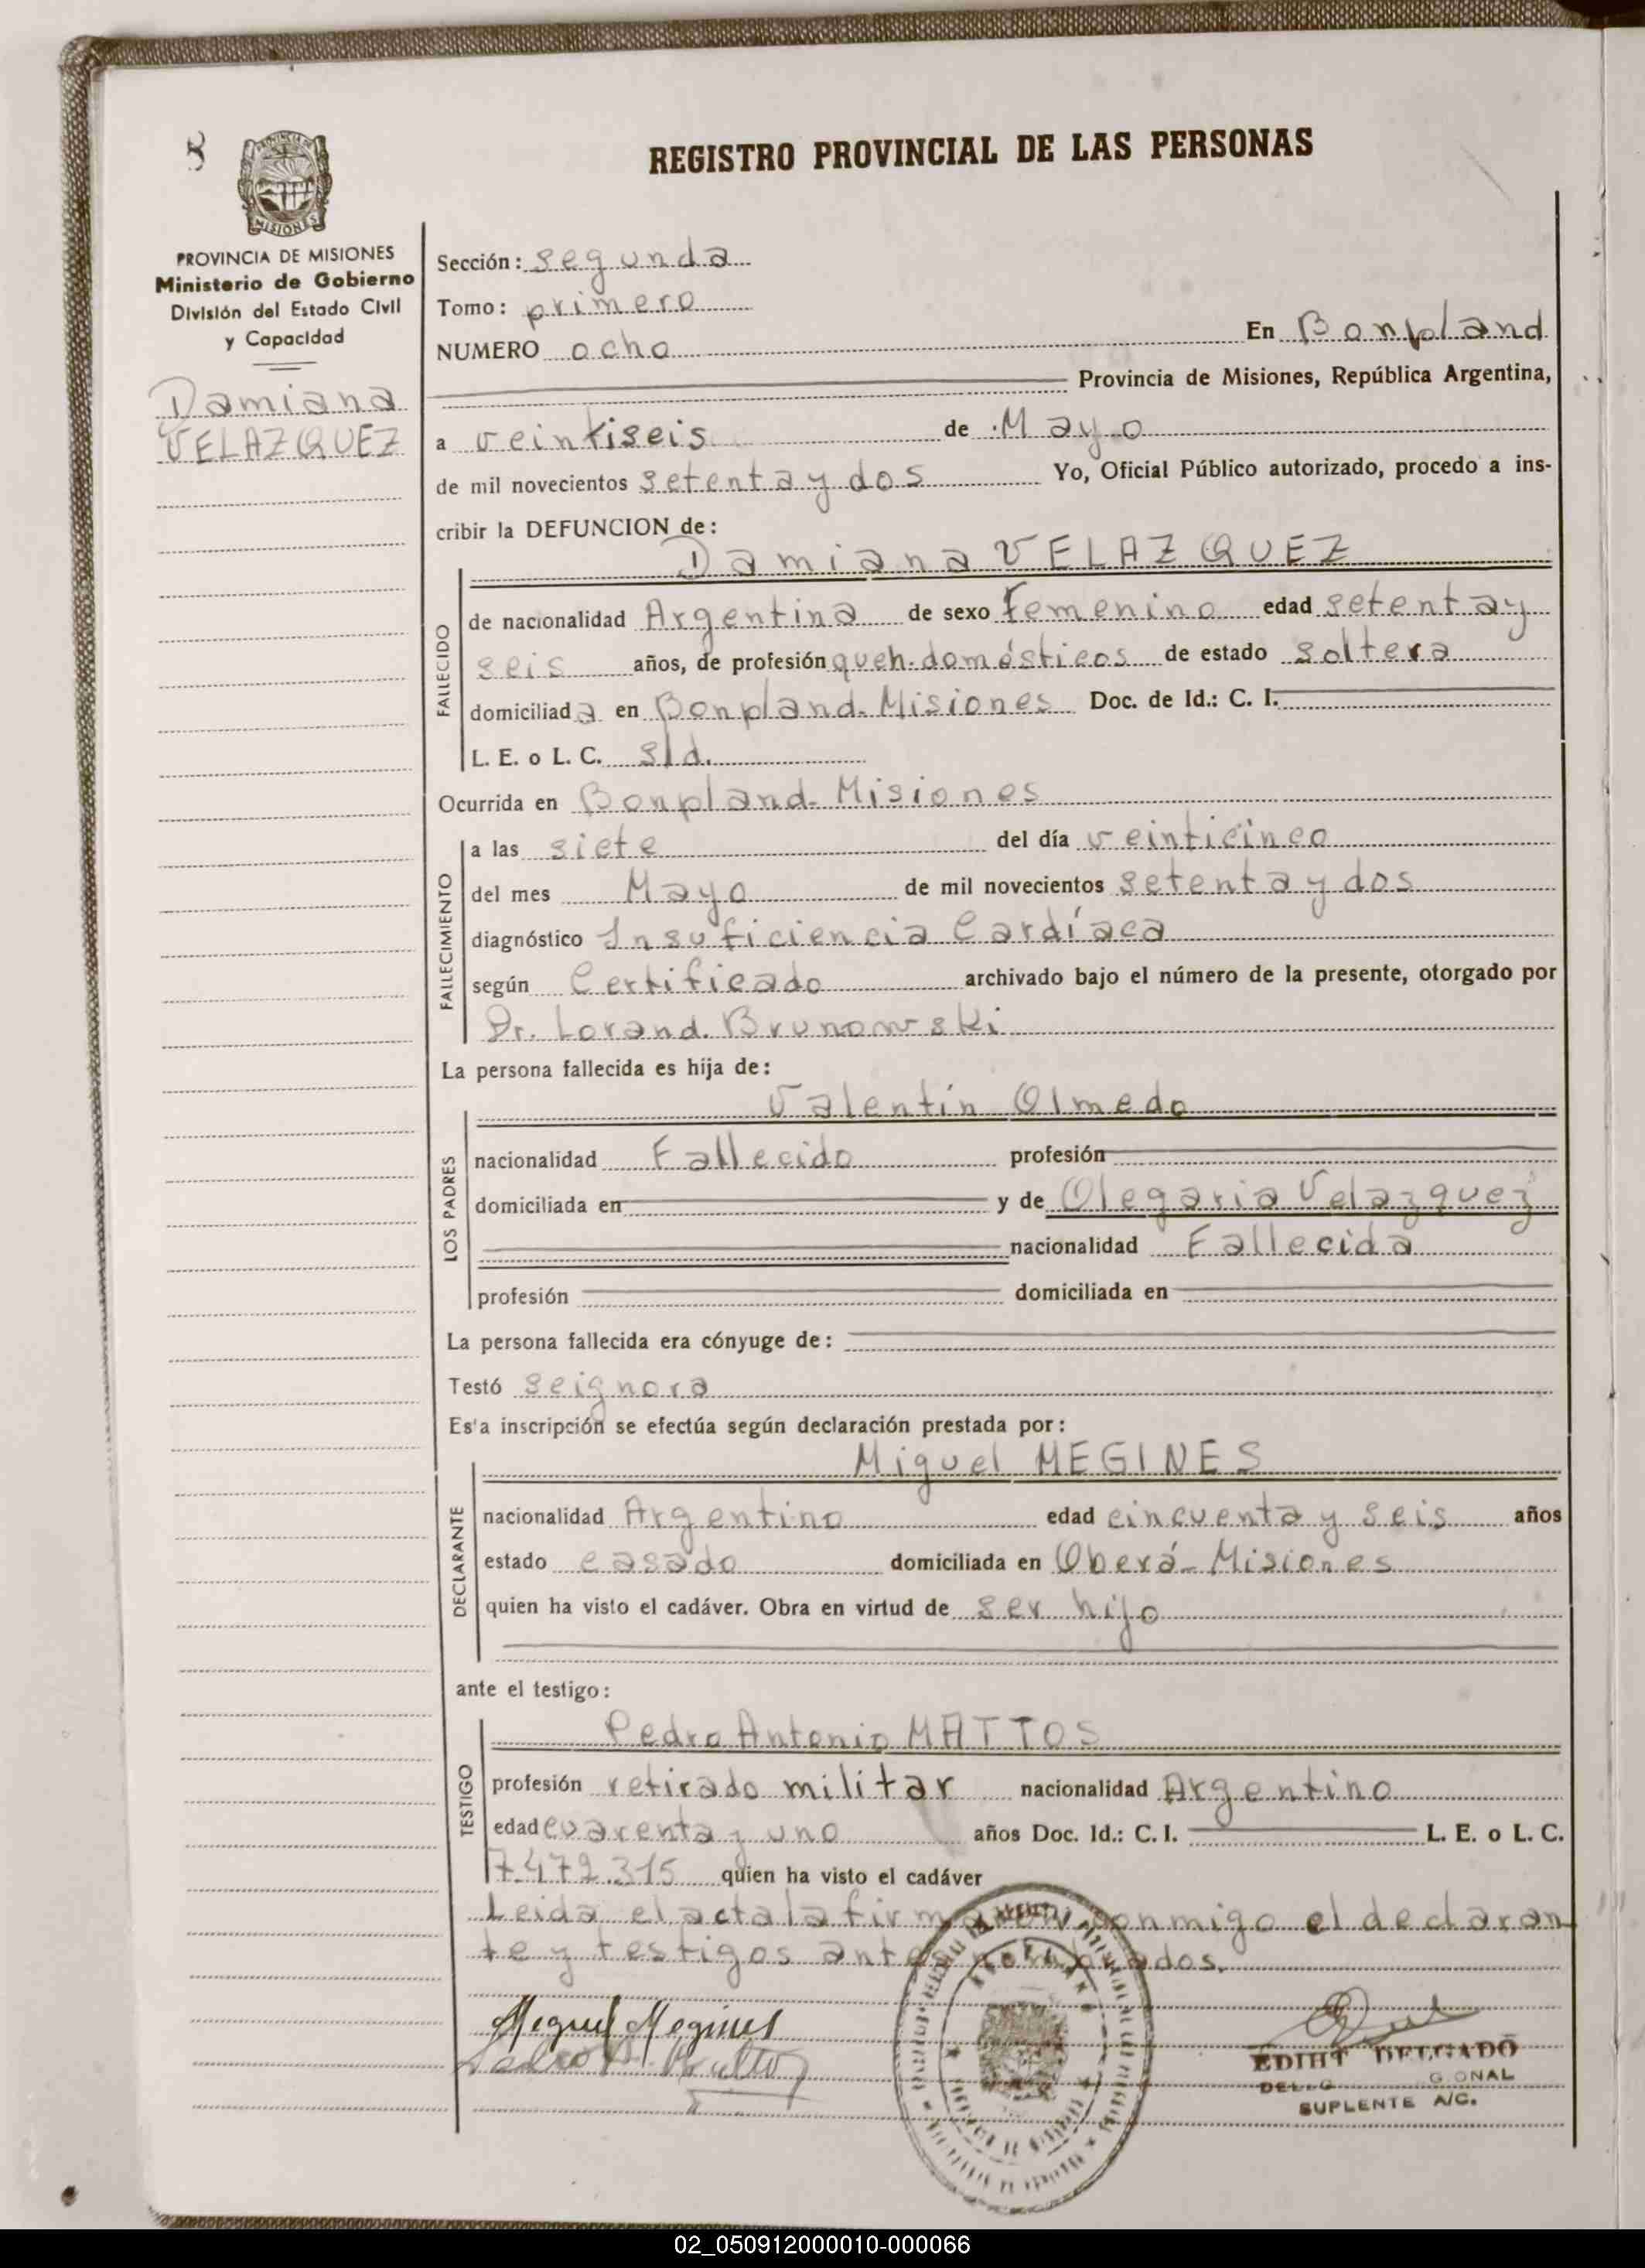 8
REGISTRO PROVINCIAL DE LAS PERSONAS
MISIONES
PROVINCIA DE MISIONES
Ministerio de Gobierno
División del Estado Civil
y Capacidad
Damiana
VELAZQUEZ
Sección: segunda
Tomo: primero
NUMERO ocho En Bonpland
Provincia de Misiones, República Argentina,
a veintiseis de Mayo
de mil novecientos setenta y dos Yo, Oficial Público autorizado, procedo a ins-
cribir la DEFUNCION de:
Damiana VELAZQUEZ
FALLECIDO
de nacionalidad Argentina de sexo femenino edad setenta y
seis años, de profesión queh. domésticos de estado soltera
domiciliada en Bonpland-Misiones Doc. de Id.: C. I.
L. E. o L. C. s/d.
Ocurrida en Bonpland-Misiones
FALLECIMIENTO
a las siete del día veinticinco
del mes Mayo de mil novecientos setenta y dos
diagnóstico Insuficiencia Cardíaca
según Certificado archivado bajo el número de la presente, otorgado por
Dr. Lorand. Brunowski
La persona fallecida es hija de:
Valentín Olmedo
LOS PADRES
nacionalidad Fallecido profesión
domiciliada en y de Olegaria Velazquez
nacionalidad Fallecida
profesión domiciliada en
La persona fallecida era cónyuge de:
Testó seignora
Es'a inscripción se efectúa según declaración prestada por:
Miguel MEGINES
DECLARANTE
nacionalidad Argentino edad cincuenta y seis años
estado casado domiciliada en Oberá-Misiones
quien ha visto el cadáver. Obra en virtud de ser hijo
ante el testigo:
Pedro Antonio MATTOS
TESTIGO
profesión retirado militar nacionalidad Argentino
edad cuarenta y uno años Doc. Id.: C. I. L. E. o L. C.
7.472.315 quien ha visto el cadáver
Leida el acta la firmaron conmigo el declaran
te y testigos antes nombrados.
Miguel Megines
EDIHT DELGADO
SUPLENTE A/C.
02_050912000010-000066